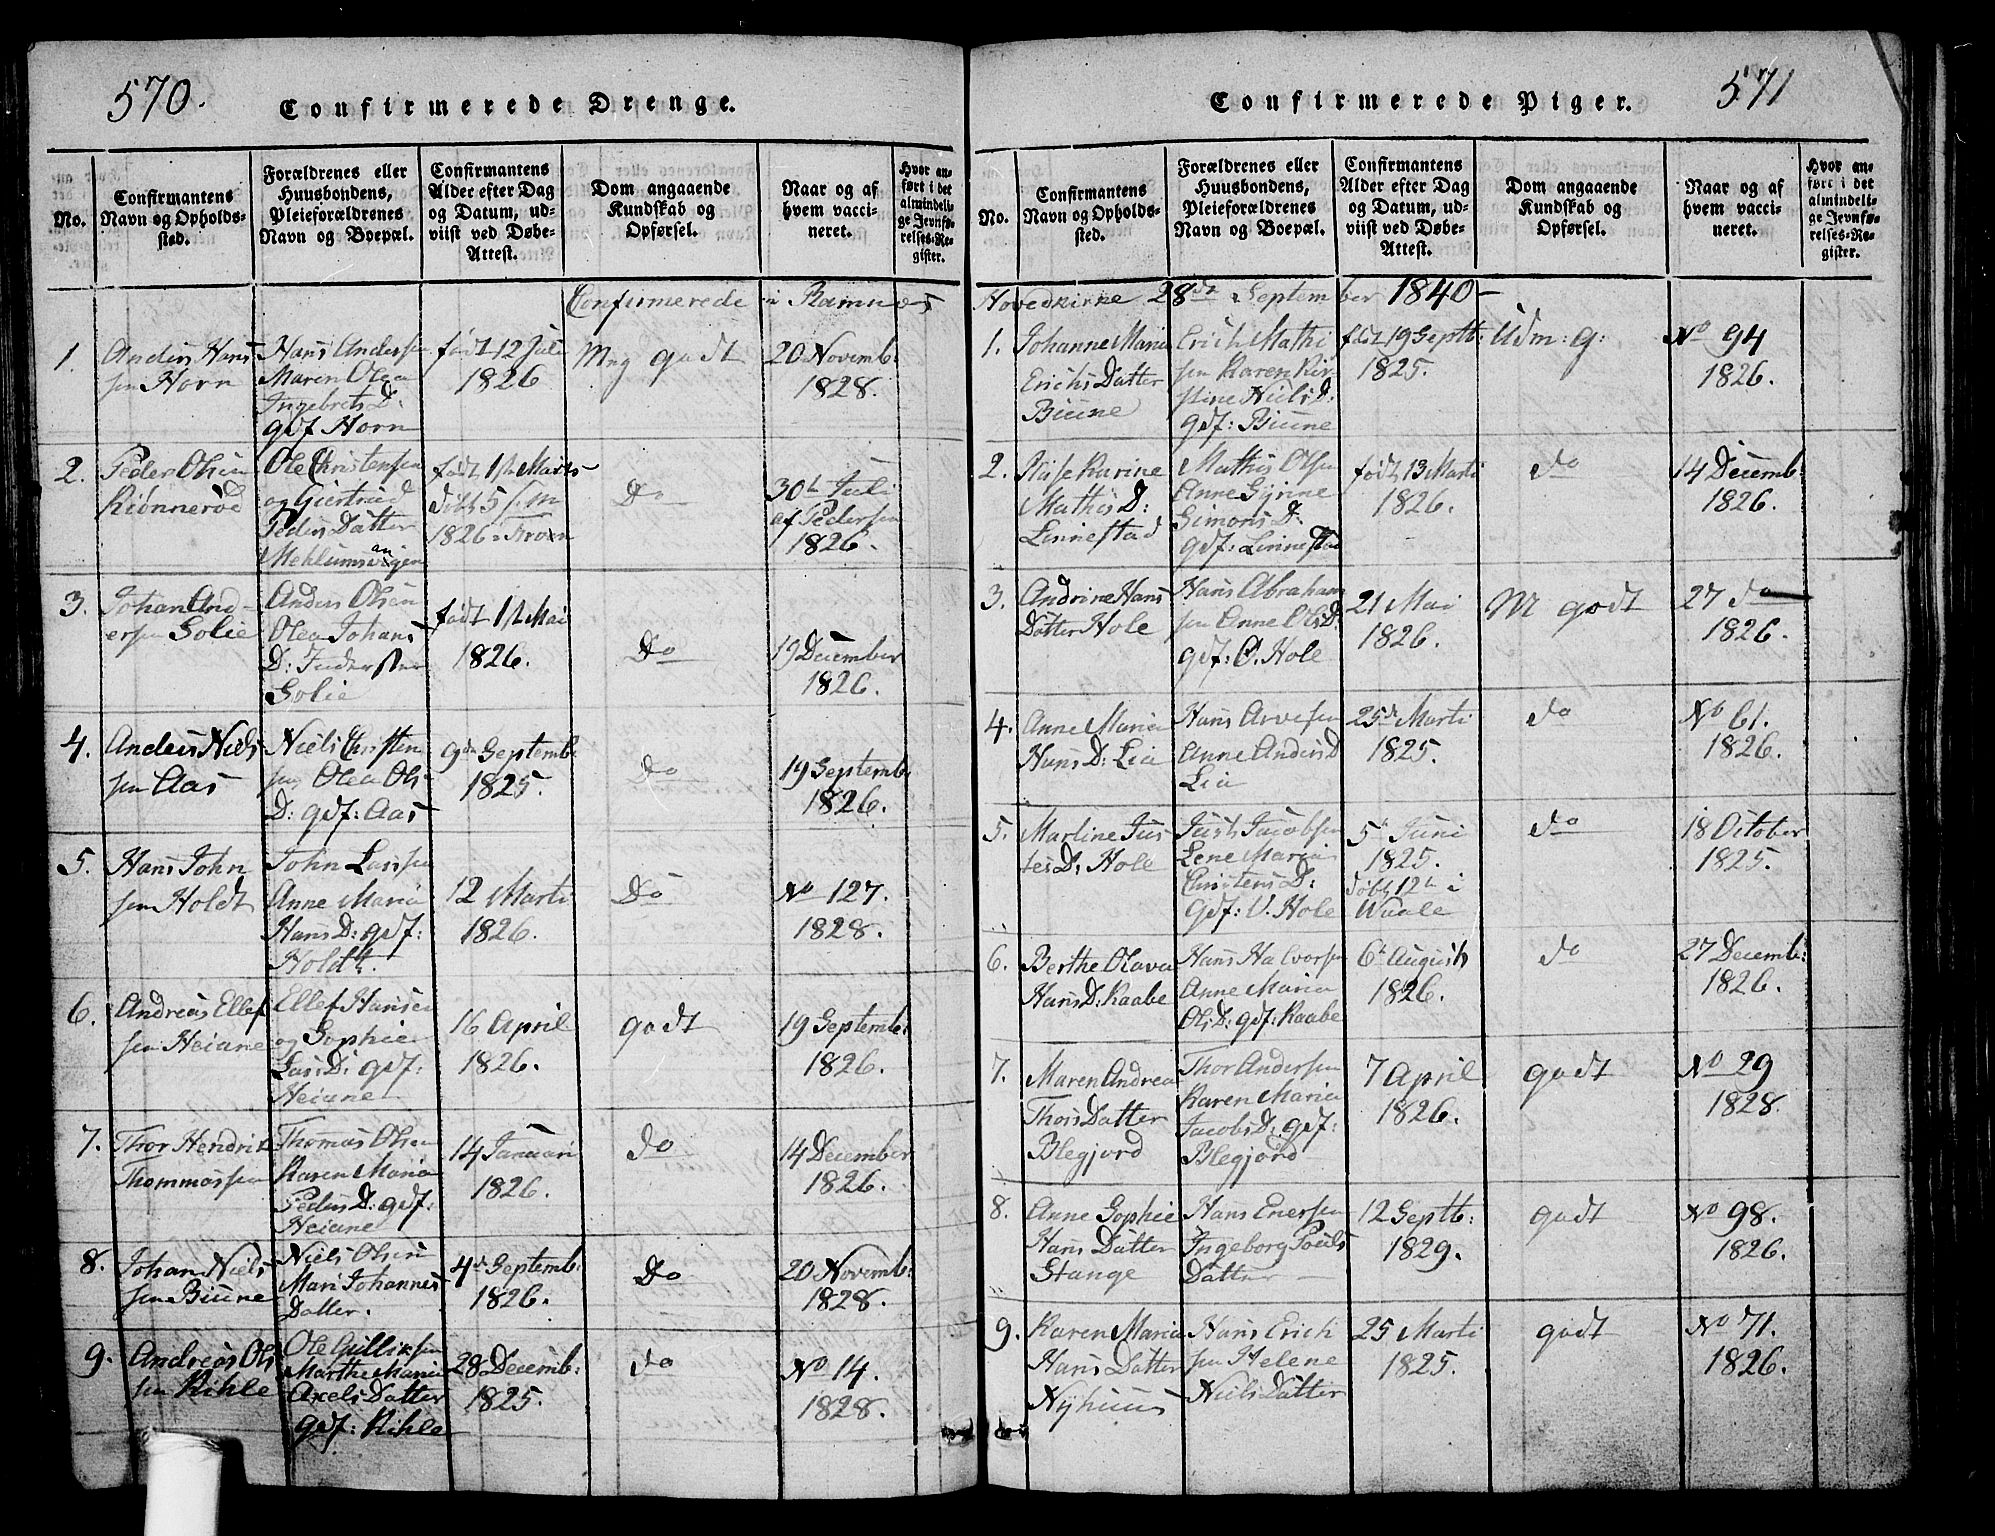 570.
Confirmerede Drenge.
No.
Confirmantens
Navn og Opholds-
sted.
Forældrenes eller
Huusbondens,
Pleieforældrenes
Navn og Boepæl.
Confirmantens
Alder efter Dag
og Datum, ud-
viist ved Døbe-
Attest.
Dom angaaende
Kundskab og
Opførsel.
Naar og af
hvem vacci-
neret.
Hvor an-
ført i det
almindeli-
ge Jevnfø-
relses-Re-
gister.
Confirmerede i Ramnæs
1.
Anders Hans
sen Horn
Hans Andersen
Maren Olea
Ingebrets D:
gdf Horn
født 12 Juli
1826
Mng godt
20 Novemb:
1828.
2.
Peder Olsen
Kiønnerød
Ole Christensen
og Giertrud
Peders Datter
Mehlumsvigen
født 1ste Marts
døbt 5
1826
Do
30te Juli
af Pedersen
1826.
3.
Johan And-
ersen Solie
Anders Olsen
Olea Johans
D:
Solie
født 1ste Mai
1826.
Do
19 December
1826.
4.
Anders Niels
sen Aas
Niels Christen
sen, Olea Ols
D: gdf: Aas
9de Septemb:
1825.
Do
19 Septemb:
1826.
5.
Hans John
sen Holdt
John Larssen
Anne Maria
Hans D: gdf:
Holdt.
12 Marti
1826.
Do
No 127.
1828.
6.
Andreas Ellef
sen Heiane
Ellef Hansen
og Sophie
Lars D: gdf:
Heiane
16 April
1826.
godt
19 Septemb:
1826.
7.
Thor Hendrik
Thommassen
Thomas Olsen
Karen Maria
Peders D: gdf:
Heiane
14 Januari
1826.
do
14 December
1826.
8.
Johan Niels
sen Biune
Niels Olsen
Mari Johannes
Datter.
4de Septemb:
1826.
Do
20 Novemb:
1828.
9.
Andreas Ols
sen Kihle
Ole Gulliksen
Marthe Maria
Axels Datter
gdf: Kihle
28 Decemb:
1825.
do
No 14.
1828.
Confirmerede Piger.
571
No.
Confirmantens
Navn og Opholds-
sted.
Forældrenes eller
Huusbondens,
Pleieforældrenes
Navn og Boepæl.
Confirmantens
Alder efter Dag
og Datum, ud-
viist ved Døbe-
Attest.
Dom angaaende
Kundskab og
Opførsel.
Naar og af
hvem vacci-
neret.
Hvor an-
ført i det
almindeli-
ge Jevnfø-
relses-Re-
gister.
Hovedkirke 28de September 1840-
1.
Johanne Maria
Erichs Datter
Biune
Erich Mathi
sen Karen Kir-
stine Niels D:
gdf: Biune
født 19 Septb:
1825.
Udm: g:
No 94
1826.
2.
Mathis D:
Linnestad
Mathis Olsen
Anne Gýrine
Simons D:
gdf: Linnestad
født 13 Marti
1826.
do
14 Decemb:
1826.
3.
Andrine Hans
Datter Hole
Hans Abraham
sen Anne Ols D.
gdf: O. Hole
21 Mai
1826.
M godt
27 do
1826.
4.
Anne Maria
Hans D: Lia
Hans Arvesen
Anne Anders D
Lia
25de Marti
1825.
do
No 61.
1826.
5.
Martine Jus
tes D: Hole
Just Jacobsen
Lene Maria
Christens D:
gdf: V. Hole
5te Juni
1825.
døbt 12te i
Waale
do
18 October
1825.
6.
Berthe Olava
Hans D: Raabe
Hans Halvorsen
Anne Maria
Ols D: gdf: Raabe
6te August
1826.
do
27 Decemb:
1826.
7.
Maren Andrea
Thors Datter
Blegjord
Thor Andersen
Karen Maria
Jacobs D: gdf:
Blegjord
7 April
1826.
godt
No 29
1828.
8.
Anne Sophie
Hans Datter
Stange
Hans Enersen
Ingeborg Pouls
Datter
12 Septb:
1829.
godt
No 98.
1826.
9.
Karen Maria
Hans Datter
Nýhuus
Hans Erich
sen Helene
Niels Datter
25 Marti
1825.
godt
No 71.
1826.